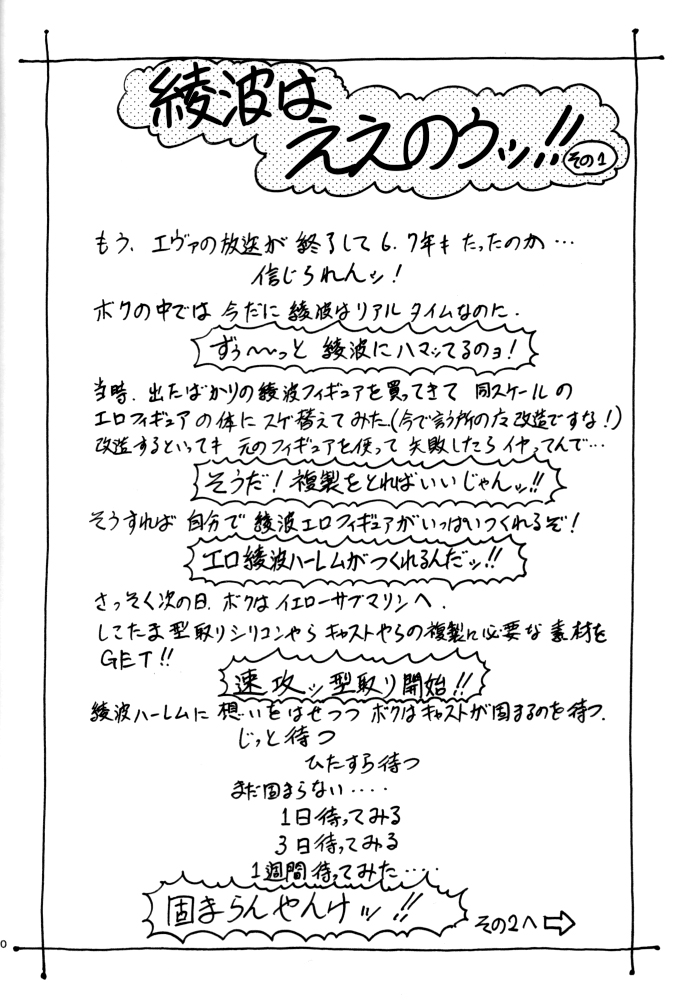 綾波は
ええのうッ!!
その1
もう、エヴァの放送が終了して6.7年もたったのか…
信じられんッ!
ボクの中では今だに綾波はリアルタイムなのに.
ずぅ〜〜っと綾波にハマッてるのョ!
当時.出たばかりの綾波フィギュアを買ってきて同スケールの
エロフィギュアの体にスゲ替えてみた.(今で言う所の左改造ですな!)
改造するといっても元のフィギュアを使って失敗したらイヤってんで…
そうだ!複製をとればいいじゃんッ!!
そうすれば自分で綾波エロフィギュアがいっぱいつくれるぞ!
エロ綾波ハーレムがつくれるんだッ!!
さっそく次の日.ボクはイエローサブマリンへ.
しこたま型取りシリコンやらキャストやらの複製に必要な素材を
GET!!
速攻ッ型取り開始!!
綾波ハーレムに想いをはせつつボクはキャストが固まるのを待つ.
じっと待つ
ひたすら待つ
まだ固まらない....
1日待ってみる
3日待ってみる
1週間待ってみた....
固まらんやんけッ!!
その2へ⇨
0